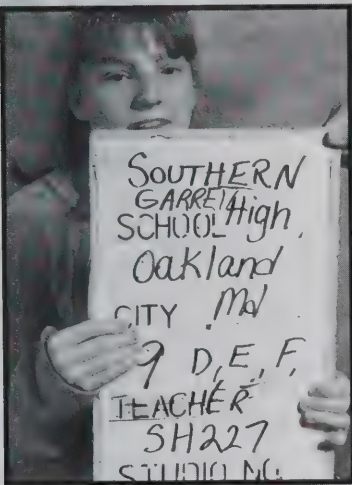 SOUTHERN
GARRETT
SCHOOL High
Oakland
CITY Md
9 D, E, F,
TEACHER
SH227
STUDIO NO.